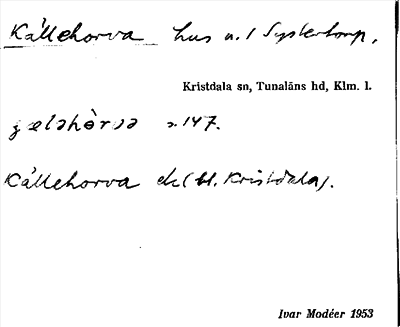 Källehorva hus u. / Systertorp,
Kristdala sn, Tunaläns hd, Klm. l.
s. 147.
Källehorva ek (bl. Kristdala).
Ivar Modéer 1953